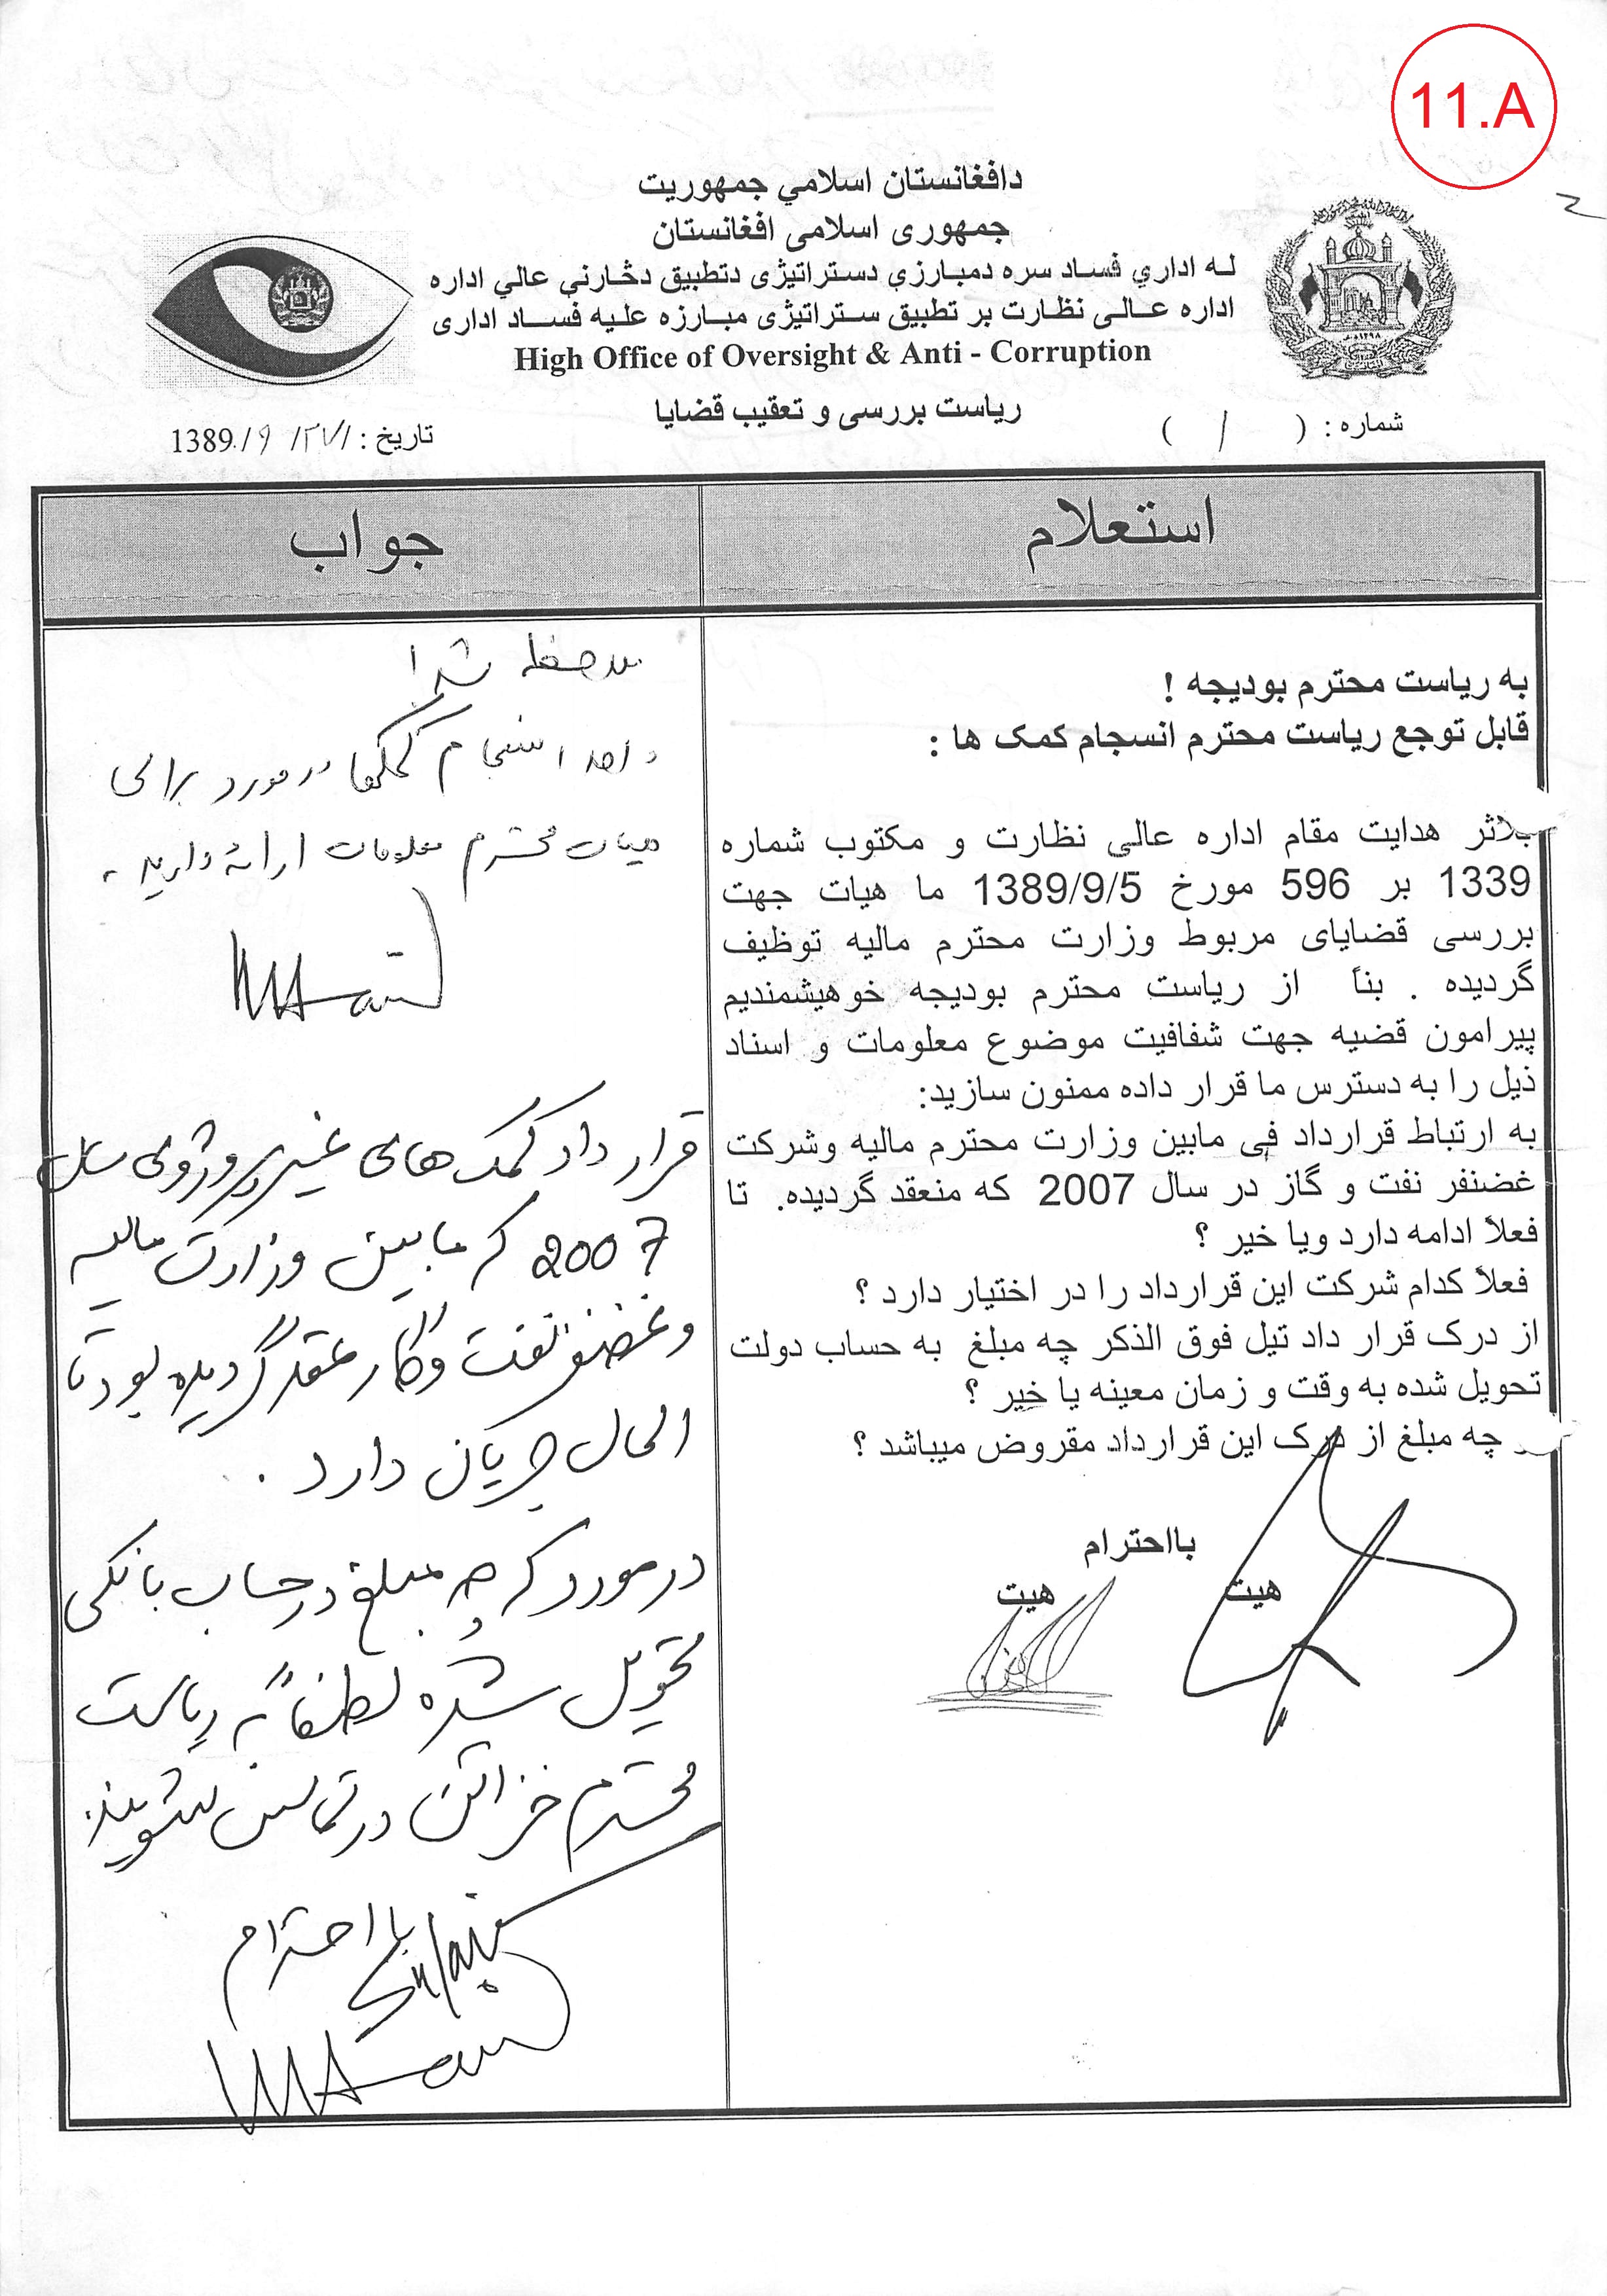 11.A
دافغانستان اسلامي جمهوريت
جمهوری اسلامی افغانستان
له اداري فساد سره دمبارزې دستراتيژۍ دتطبيق دڅارنې عالي اداره
اداره عالی نظارت بر تطبیق ستراتیژی مبارزه علیه فساد اداری
High Office of Oversight & Anti - Corruption
ریاست بررسی و تعقیب قضایا
شماره : ( / )
تاریخ : /۲۷/ ۹/.1389
استعلام
به ریاست محترم بودیجه !
قابل توجع ریاست محترم انسجام کمک ها :
بلاثر هدایت مقام اداره عالی نظارت و مکتوب شماره
1339 بر 596 مورخ 1389/9/5 ما هیات جهت
بررسی قضایای مربوط وزارت محترم مالیه توظیف
گردیده . بناً از ریاست محترم بودیجه خوهیشمندیم
پیرامون قضیه جهت شفافیت موضوع معلومات و اسناد
ذیل را به دسترس ما قرار داده ممنون سازید:
به ارتباط قرارداد فی مابین وزارت محترم مالیه وشرکت
غضنفر نفت و گاز در سال 2007 که منعقد گردیده. تا
فعلاً ادامه دارد ویا خیر ؟
فعلاً کدام شرکت این قرارداد را در اختیار دارد ؟
از درک قرار داد تیل فوق الذکر چه مبلغ به حساب دولت
تحویل شده به وقت و زمان معینه یا خیر ؟
چه مبلغ از درک این قرارداد مقروض میباشد ؟
بااحترام
هیت
هیت
جواب
ملاحظه شد!
واحد انسجام کمکها در مورد برای
هیئات محترم معلومات ارائه دارید.
قرار داد کمک های غیر پروژوی سال
2007 که مابین وزارت مالیه
و غضنفر نفت و گاز عقد گردیده بود تا
الحال جریان دارد .
در مورد که چه مبلغ در حساب بانکی
تحویل شده لطفاً به ریاست
محترم خزائن در تماس شوید.
با احترام